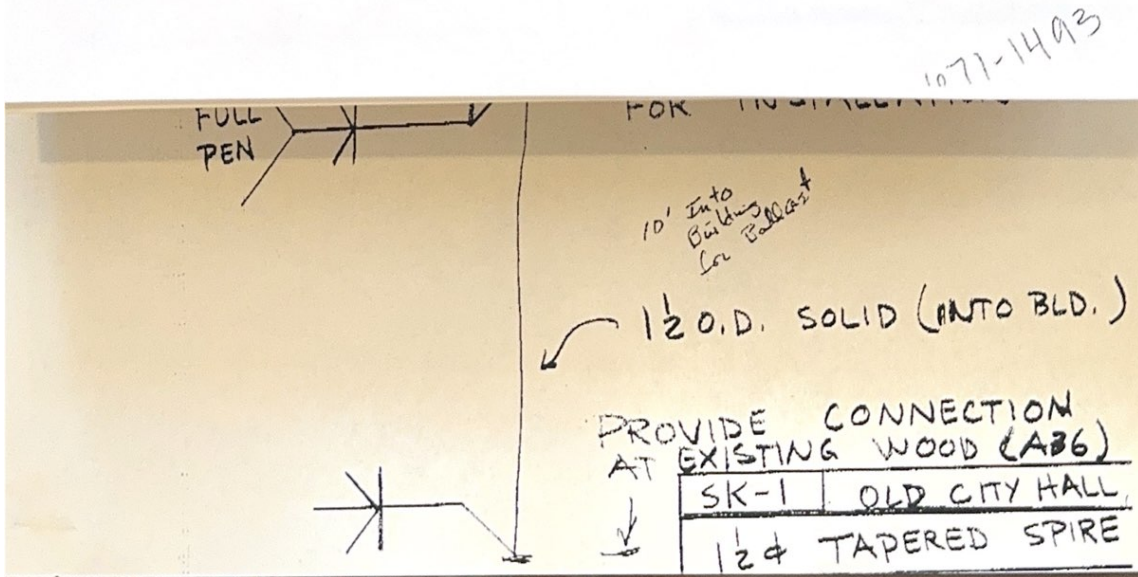 1071-1493
FULL
PEN
FOR INSTALLATION
10' Into
Building
for Ballast
1 1/2 O.D. SOLID (INTO BLD.)
PROVIDE CONNECTION
AT EXISTING WOOD (A36)
SK-1 OLD CITY HALL
1 1/2 ϕ TAPERED SPIRE